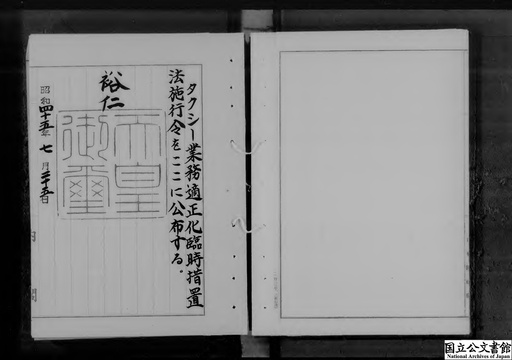 タクシー業務適正化臨時措置
法施行令をここに公布する。
裕仁
天皇
御璽
昭和四十五年七月二十五日
内
閣
国立公文書館
National Archives of Japan